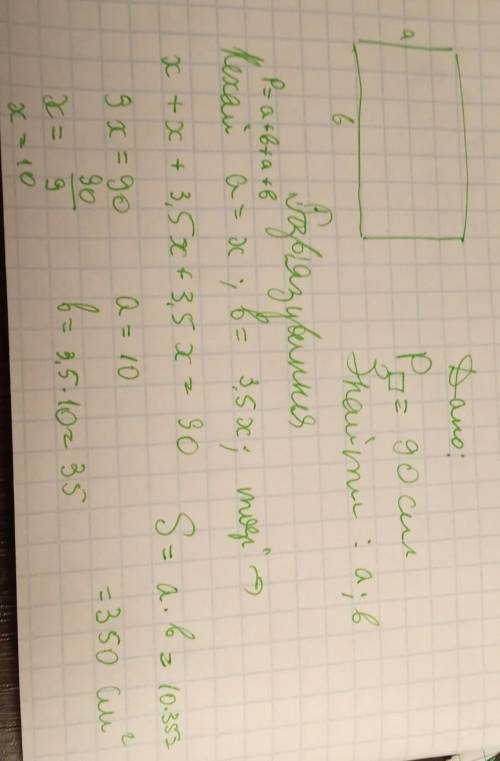 Дано:
P▭ = 90 см
Знайти: a; b
a
b
Розв'язування
P = a+b+a+b
Нехай a = x; b = 3,5x; тоді
x + x + 3,5x + 3,5x = 90
9x = 90
x = 90/9
x = 10
a = 10
b = 3,5·10 = 35
S = a·b = 10·35=
= 350 см²